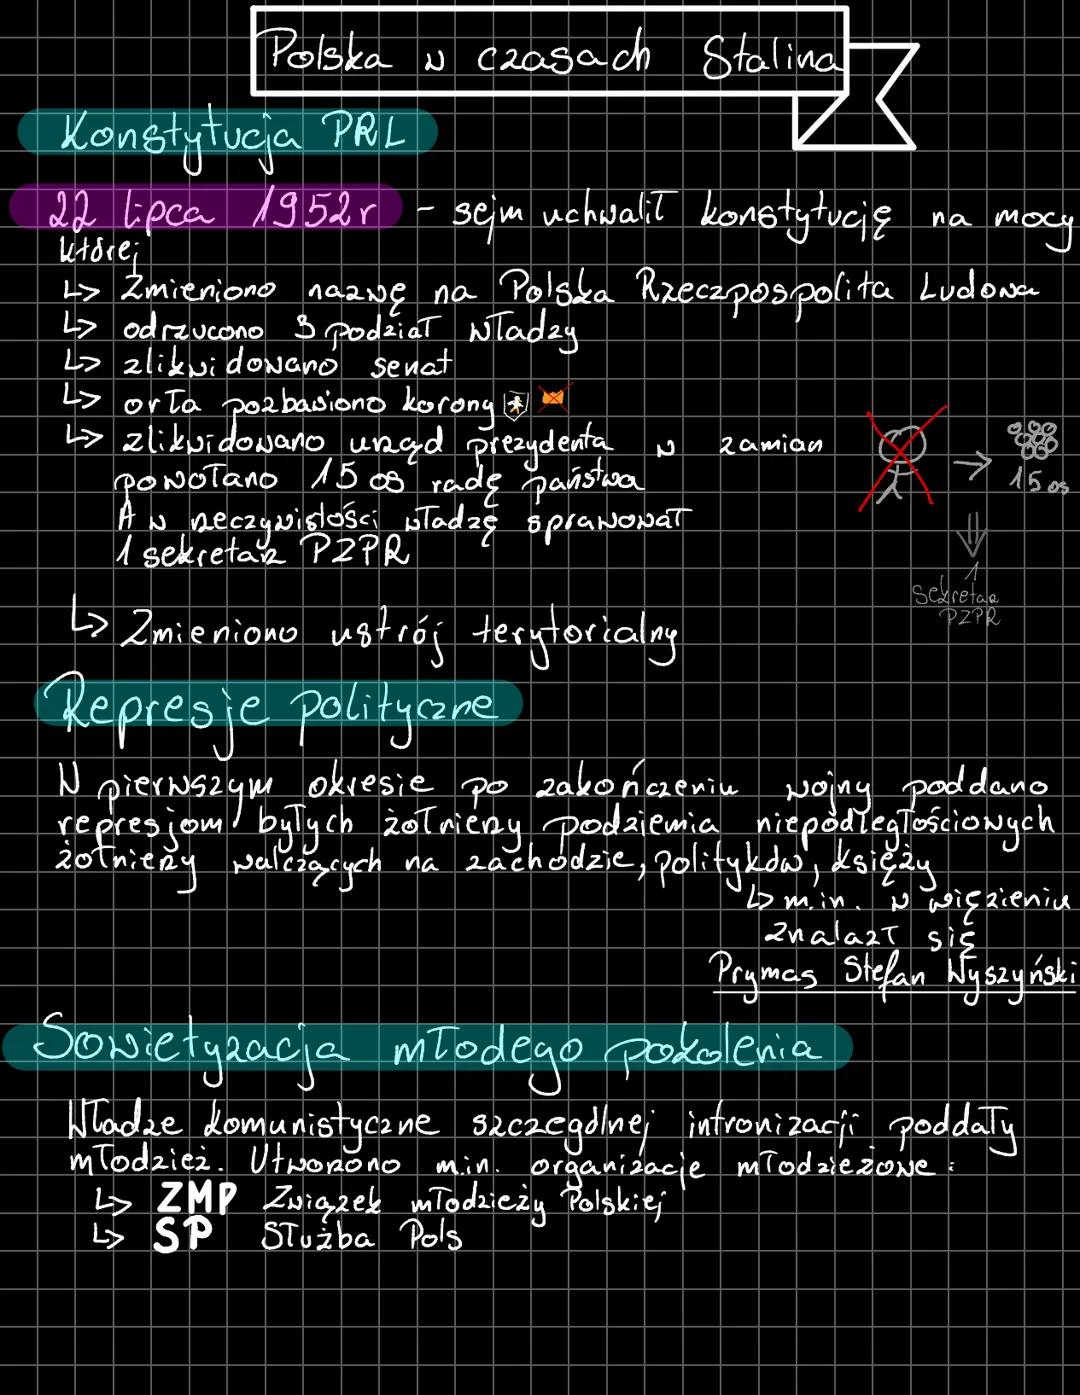 Polska w czasach Stalina
Konstytucja PRL
22 lipca 1952r - sejm uchwalił konstytucję na mocy
której
↳ Zmieniono nazwę na Polska Rzeczpospolita Ludowa
↳ odrzucono 3 podział władzy
↳ zlikwidowano senat
↳ orła pozbawiono korony
↳ zlikwidowano urząd prezydenta w zamian
powołano 15 os radę państwa
A w rzeczywistości władzę sprawował
1 sekretarz PZPR
→ 15 os
1
Sekretarz
PZPR
↳ Zmieniono ustrój terytorialny
Represje polityczne
W pierwszym okresie po zakończeniu wojny poddano
represjom byłych żołnierzy podziemia niepodległościowych
żołnierzy walczących na zachodzie, polityków, księży
↳ m.in. w więzieniu
znalazł się
Prymas Stefan Wyszyński
Sowietyzacja młodego pokolenia
Władze komunistyczne szczególnej intronizacji poddały
młodzież. Utworzono m.in. organizacje młodzieżowe:
↳ ZMP Związek młodzieży Polskiej
↳ SP Służba Pols